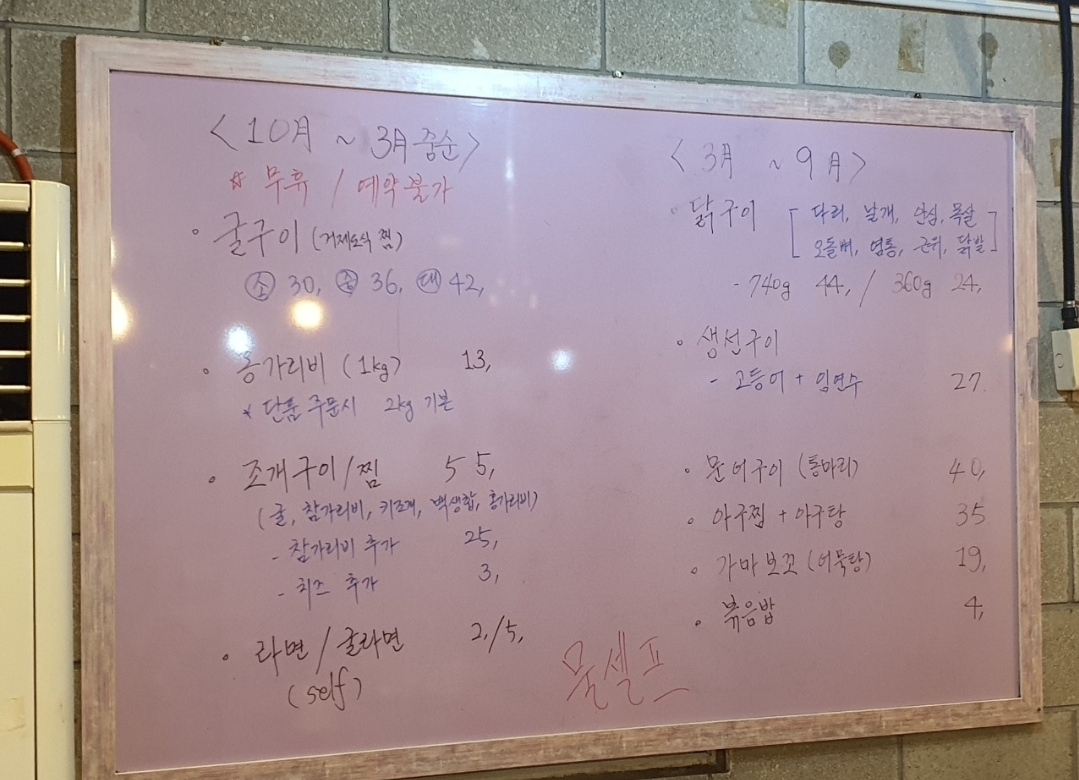 <10月 ~ 3月 중순>
☆ 무휴 / 예약불가
• 굴구이 (거제도식 찜)
㊛ 30, ㊥ 36, ㊅ 42,
• 홍가리비 (1kg) 13,
* 단품 주문시 2kg 기본
• 조개구이/찜 55,
(굴, 참가리비, 키조개, 백생합, 홍가리비)
- 참가리비 추가 25,
- 치즈 추가 3,
• 라면/굴라면 2,/5,
(self)
<3月 ~ 9月>
• 닭구이 [다리, 날개, 안심, 목살
오돌뼈, 염통, 근위, 닭발]
- 740g 44, / 360g 24,
• 생선구이
- 고등어 + 임연수 27
• 문어구이 (통마리) 40,
• 아구찜 + 아구탕 35
• 가마보꼬 (어묵탕) 19,
• 볶음밥 4,
물셀프